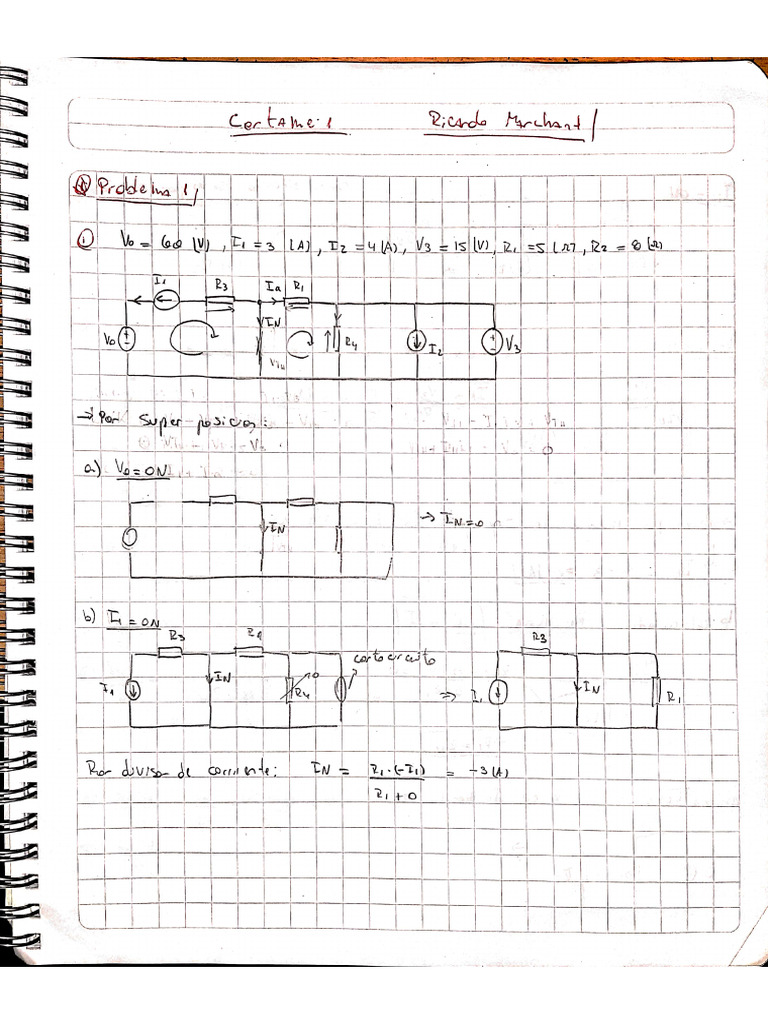 CertAme. 1 Ricardo Marchant
Problema 1
i V0 = 60 [V], I1 = 3 [A], I2 = 4 [A], V3 = 15 [V], R1 = 5 [Ω], R2 = 8 [Ω]
I1 R3 Ia R1
IN
V0 + - R4 I2 + - V3
VTH
→ Por Superposicion:
a) V0 = ON
IN → IN = 0
b) I1 = ON
R3 R1 R3
cortocircuito
I1 IN R4 0 ⇒ I1 IN R1
Por divisor de corriente: IN = R1·(-I1) / R1 + 0 = -3 [A]